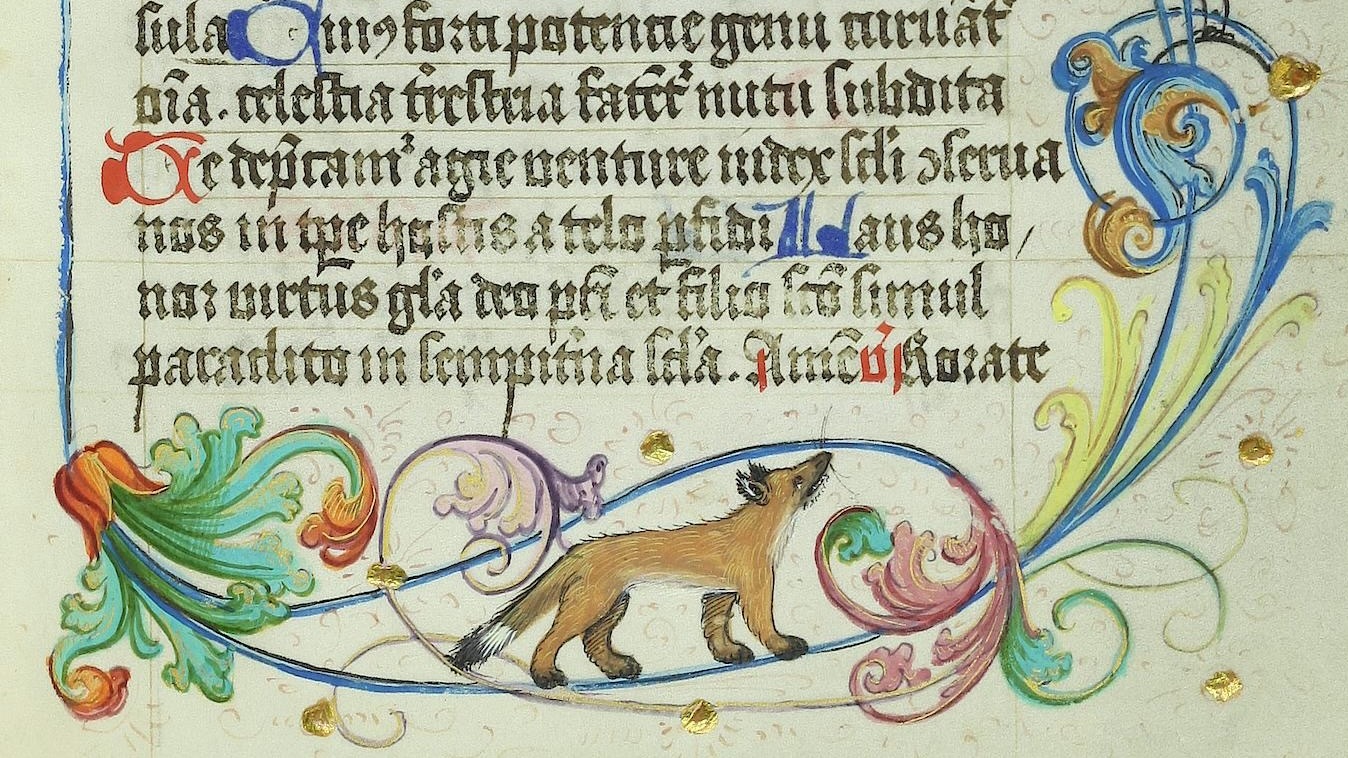 sula Cuiꝰ forti potencie genu curuāt᷑
oīa. celestia t᷑restria fatēt᷑ nutu subdita
Te dep̄camᷣ agie venture iudex scl̄i ↄserua
nos in tp̄e hostis a telo ꝑfidi Laus ho/
nor virtus gl̄a deo pr̄i et filio sc̄o simul
paraclito in sempit᷑na scl̄a. Amē v̓s Rorate